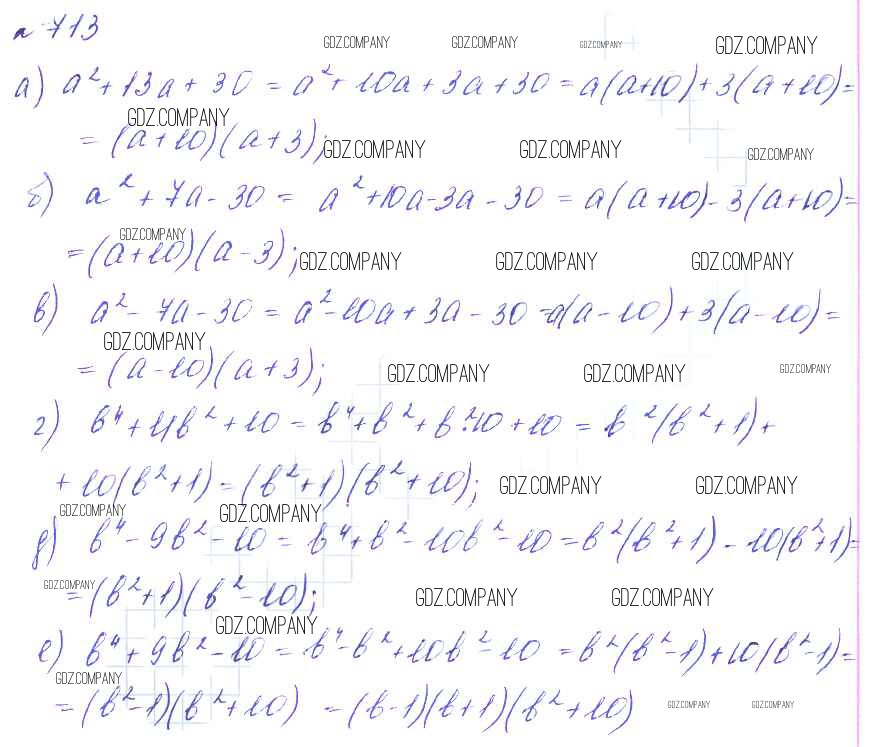 №713
GDZ.COMPANY GDZ.COMPANY GDZ.COMPANY GDZ.COMPANY
а) a² + 13a + 30 = a² + 10a + 3a + 30 = a(a+10) + 3(a+10) =
GDZ.COMPANY
= (a+10)(a+3);
GDZ.COMPANY GDZ.COMPANY GDZ.COMPANY
б) a² + 7a - 30 = a² + 10a - 3a - 30 = a(a+10) - 3(a+10) =
GDZ.COMPANY
= (a+10)(a-3);
GDZ.COMPANY GDZ.COMPANY GDZ.COMPANY
в) a² - 7a - 30 = a² - 10a + 3a - 30 = a(a-10) + 3(a-10) =
GDZ.COMPANY
= (a-10)(a+3);
GDZ.COMPANY GDZ.COMPANY GDZ.COMPANY
г) b⁴ + 11b² + 10 = b⁴ + b² + b²·10 + 10 = b²(b²+1) +
+ 10(b²+1) = (b²+1)(b²+10);
GDZ.COMPANY GDZ.COMPANY
GDZ.COMPANY GDZ.COMPANY
д) b⁴ - 9b² - 10 = b⁴ + b² - 10b² - 10 = b²(b²+1) - 10(b²+1) =
GDZ.COMPANY
= (b²+1)(b²-10);
GDZ.COMPANY GDZ.COMPANY
GDZ.COMPANY
е) b⁴ + 9b² - 10 = b⁴ - b² + 10b² - 10 = b²(b²-1) + 10(b²-1) =
GDZ.COMPANY
= (b²-1)(b²+10) = (b-1)(b+1)(b²+10)
GDZ.COMPANY GDZ.COMPANY